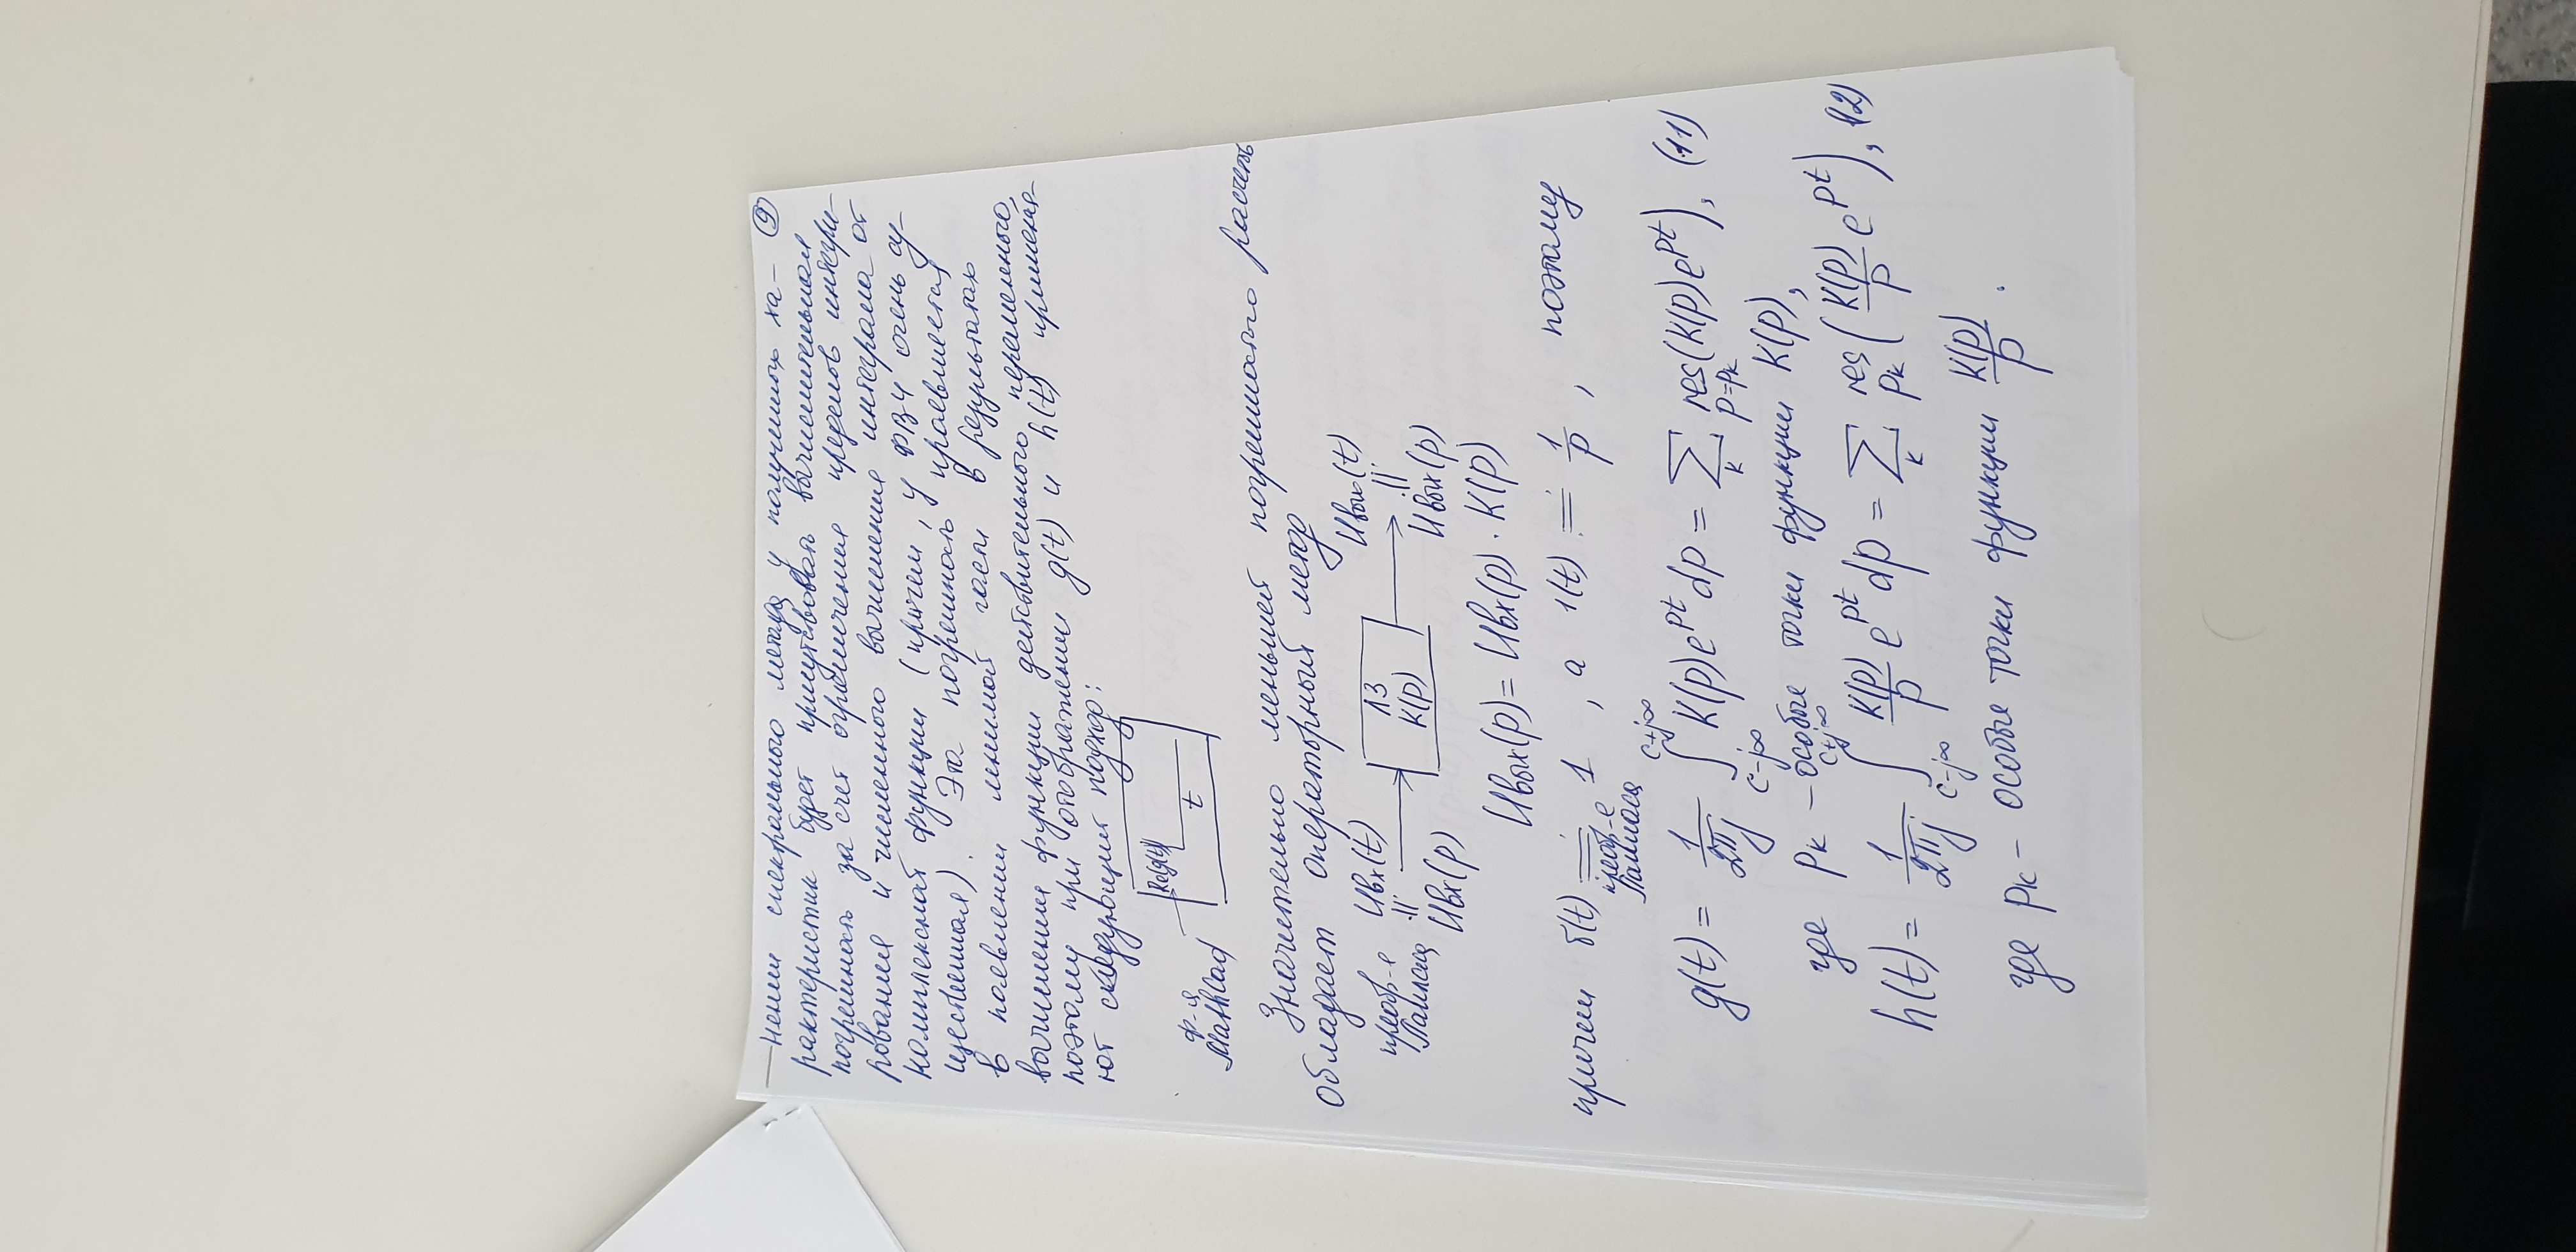 —нении спектрального метода у полученных ха- ⑨
рактеристик будет присутствовать вычислительная
погрешность за счет ограничения пределов интегри-
рования и численного вычисления интеграла от
комплексной функции (причем, у ФВЧ очень су-
щественная). Эта погрешность проявляется
в появлении мнимой части в результатах
вычисления функции действительного переменного,
поэтому при отображении g(t) и h(t) применя-
ют следующий подход:
Re(g(t))
t
ф-я
MathCad
Значительно меньшей погрешностью расчетов
обладает операторный метод
преобр-е
Лапласа
Uвх(t)
Uвх(p)
ЛЗ
K(p)
Uвых(t)
Uвых(p)
Uвых(p) = Uвх(p) · K(p)
причем δ(t) ≓ 1 , а 1(t) ≓ 1/p , поэтому
преобр-е
Лапласа
g(t) = 1/(2πj) ∫_{c-j∞}^{c+j∞} K(p)e^{pt} dp = Σ_k res_{p=p_k} (K(p)e^{pt}), (11)
где p_k – особые точки функции K(p),
h(t) = 1/(2πj) ∫_{c-j∞}^{c+j∞} K(p)/p e^{pt} dp = Σ_k res_{p_k} (K(p)/p e^{pt}), (12)
где p_k – особые точки функции K(p)/p .